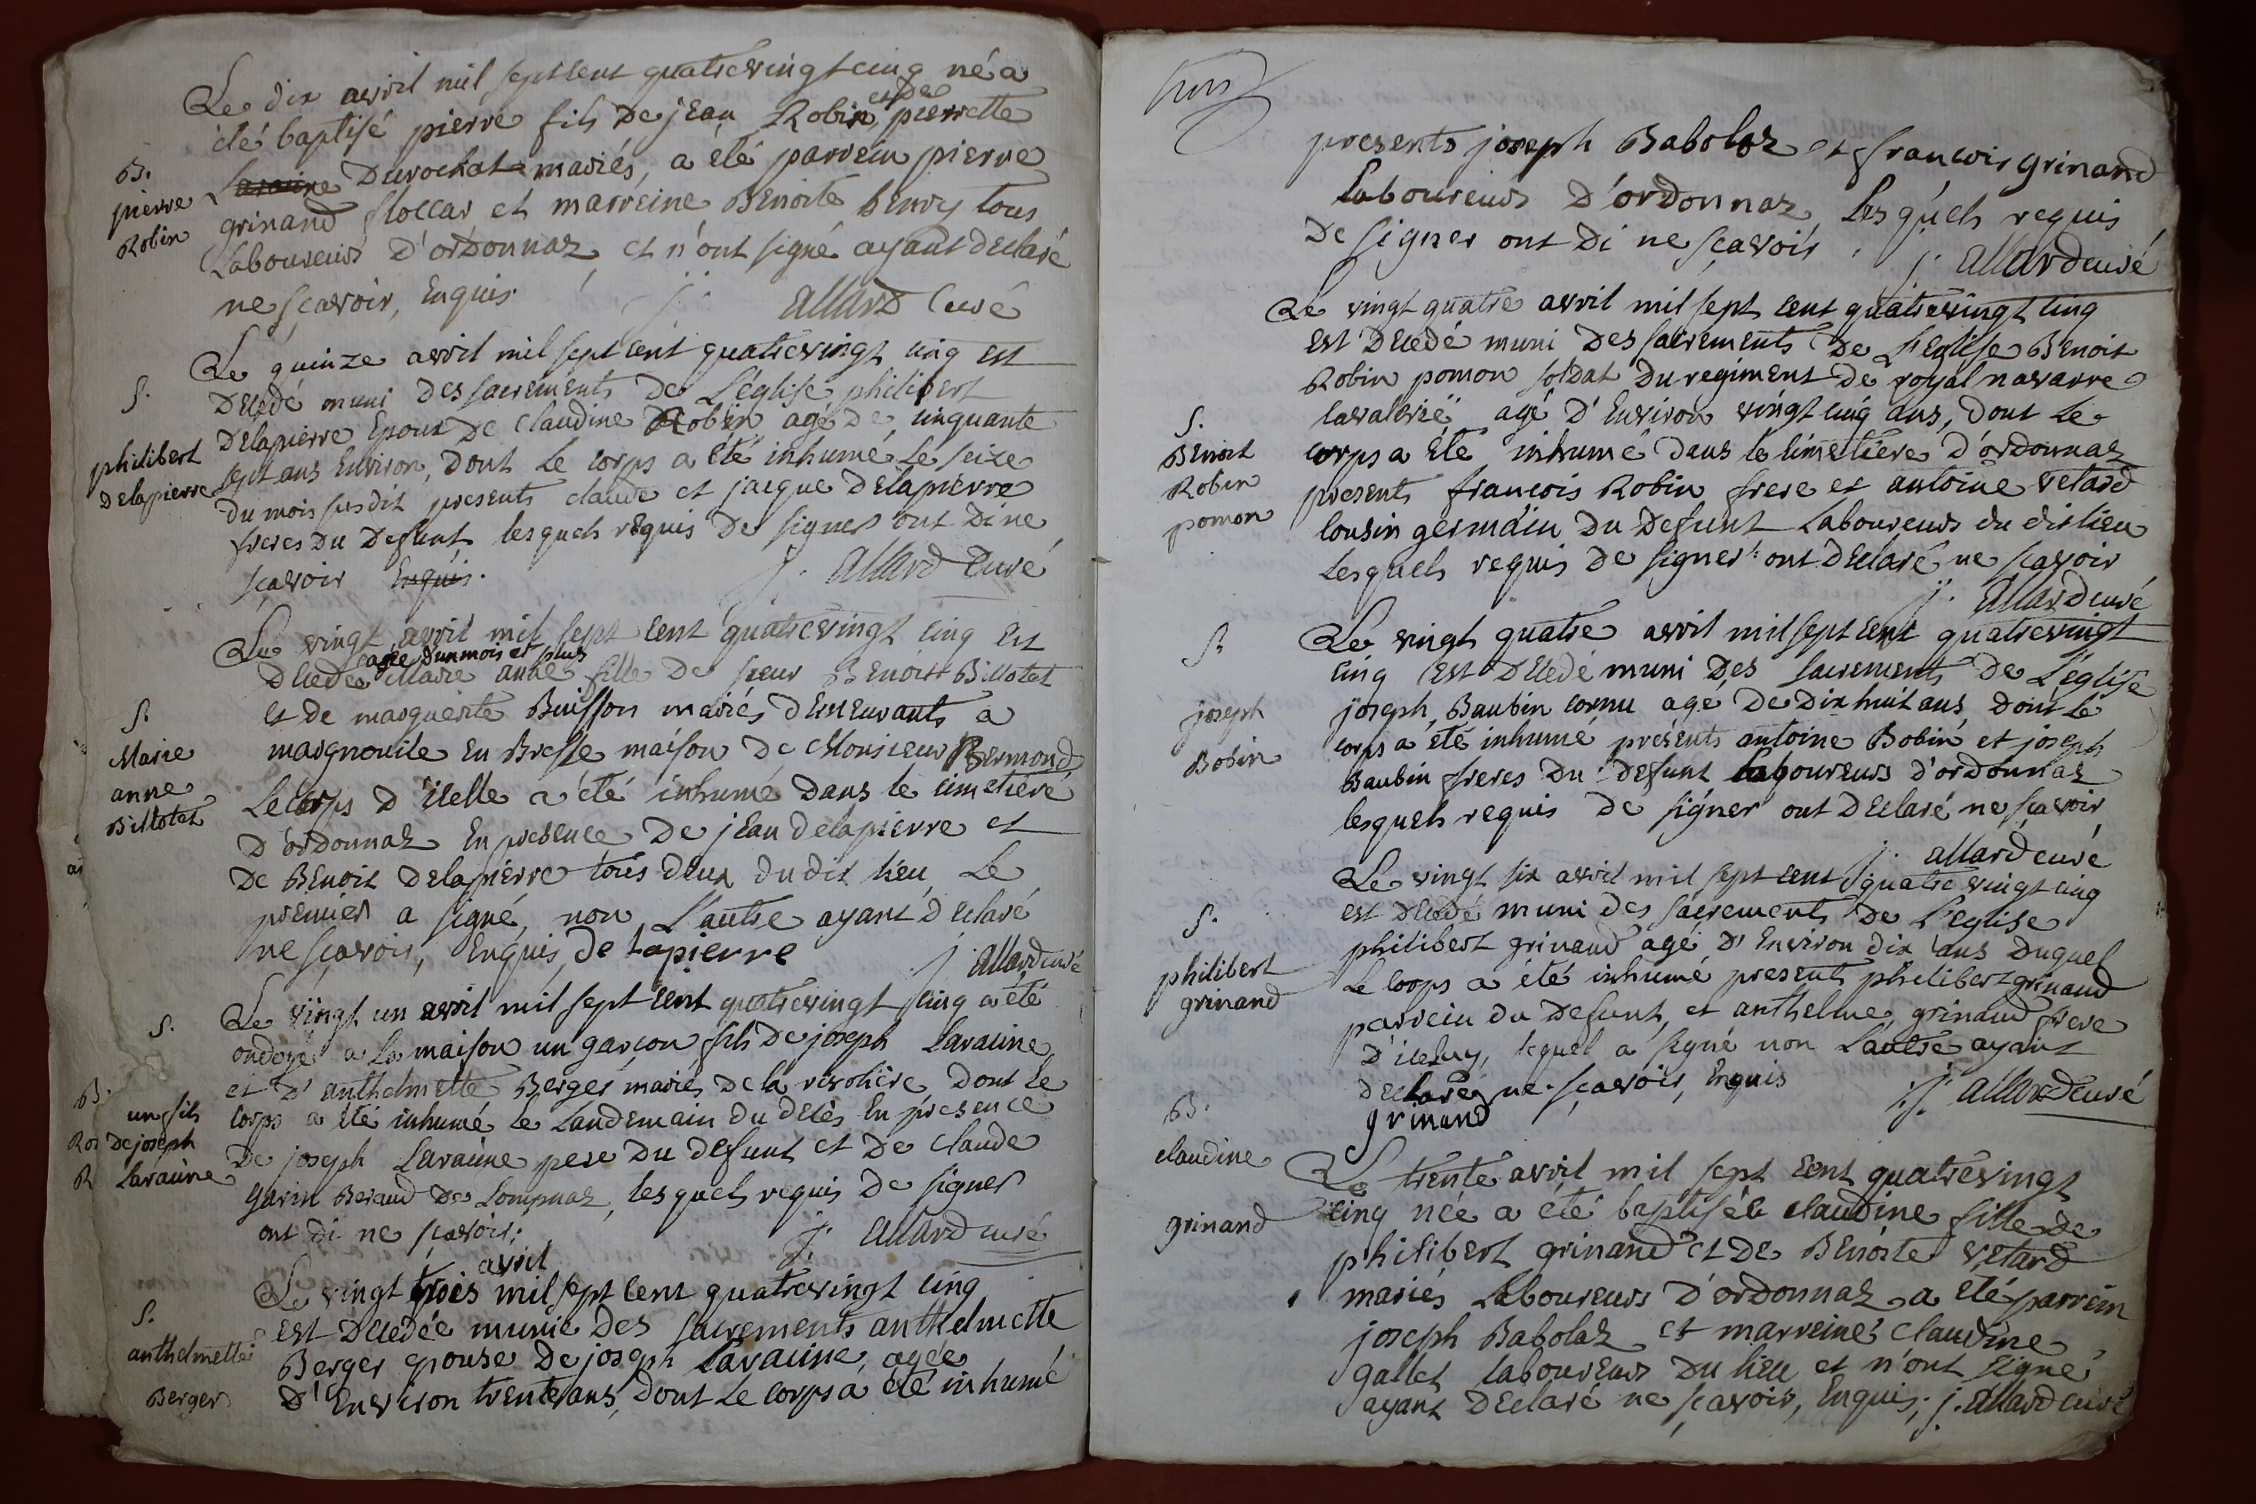 Le dix avril mil sept cent quatrevingt cinq né a
été baptisé pierre fils De jean Robin, et De pierrette
Duvochat mariés, a été parrein pierre
grinand floccar et marreine Benoite benry tous
Laboureurs D'ordonnaz, et n'ont signé ayant Declaré
ne sçavoir, Enquis. j. allard Curé
B.
pierre
Robin
Le quinze avril mil sept cent quatrevingt cinq est
Decedé muni des sacrements De L'église philibert
Delapierre Epoux De claudine Robin agé De cinquante
sept ans Environ, Dont Le corps a été inhumé Le seize
Du mois susdit presents claude et jacque Delapierre
freres Du Defunt lesquels requis De signer ont Di ne
sçavoir Enquis. j. allard Curé
S.
philibert
Delapierre
Le vingt avril mil sept cent quatrevingt cinq Est
agée d'un mois et plus
Decedée Marie anne fille De sieur Benoist Billotet
et de marguerite Buisson mariés Demeurants a
marignouile En Bresse maison De Monsieur Bermond
Le corps D'icelle a été inhumé Dans le cimetiére
D'ordonnaz En presence De jean Delapierre et
De Benoit Delapierre tous deux du dit lieu, Le
premier a signé, non L'autre ayant Declaré
ne sçavoir, Enquis, de lapierre j. allard curé
S.
Marie
anne
Billotet
Le vingt un avril mil sept cent quatrevingt cinq a été
ondoyé a La maison un garcon fils De joseph Laraune
et D'anthelmette Berger mariés De la rivoliere Dont Le
corps a été inhumé Le Landemain du decès En presence
De joseph Laraune pere Du Defunt et De claude
garin Beraud De Lompnaz, lesquels requis De signer
ont di ne sçavoir; j. allard curé
S.
B.
un fils
De joseph
Laraune
avril
Le vingt trois mil sept cent quatrevingt cinq
Est Decedée munie Des sacrements anthelmette
Berger epouse De joseph Laraune, agée
D'Environ trente ans, Dont Le corps a été inhumé
S.
anthelmette
Berger
presents joseph Babolaz et francois grinand
Laboureurs D'ordonnaz Lesquels requis
De signer ont Di ne sçavoir. j. allard curé
Le vingt quatre avril mil sept cent quatrevingt cinq
est Decedé muni Des sacrements De L'Eglise Benoit
Robin pomon soldat Du regiment De royal navarre
cavalerie agé D'Environ vingt cinq ans, Dont Le
corps a été inhumé Dans le cimetiére D'ordonnaz
presents francois Robin frere et antoine vetard
cousin germain Du Defunt Laboureurs du dit lieu
Lesquels requis De signer ont Declaré ne sçavoir
j. allard curé
S.
Benoit
Robin
pomon
Le vingt quatre avril mil sept cent quatrevingt
cinq Est Decedé muni Des sacrements De L'église
joseph Baubin cornu agé De Dix huit ans, Dont Le
corps a été inhumé presents antoine Bobin et joseph
Baubin freres Du Defunt Laboureurs D'ordonnaz
lesquels requis De signer ont Declaré ne sçavoir
j. allard curé
S.
joseph
Bobin
Le vingt six avril mil sept cent quatre vingt cinq
est Decedé muni des sacrements De L'eglise
philibert grinand agé D'Environ dix ans Duquel
Le corps a été inhumé present philibert grinand
parrein du Defunt, et anthelme grinand frere
D'iceluy, lequel a signé non L'autre ayant
Declaré ne sçavoir, Enquis j. allard curé
grinand
S.
philibert
grinand
Le trente avril mil sept cent quatrevingt
cinq née a été baptisée claudine fille De
philibert grinand et De Benoite vetard
mariés Laboureurs D'ordonnaz a été parrein
joseph Babolaz et marreine claudine
gallet laboureurs Du lieu et n'ont signé
ayant Declaré ne sçavoir, Enquis; j. allard curé
B.
claudine
grinand